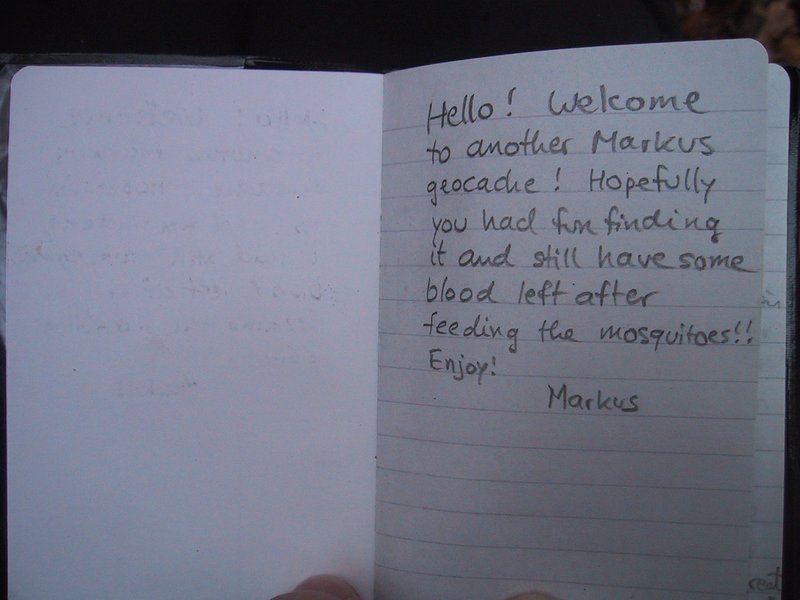 Hello! Welcome
to another Markus
geocache! Hopefully
you had fun finding
it and still have some
blood left after
feeding the mosquitoes!!
Enjoy!
Markus